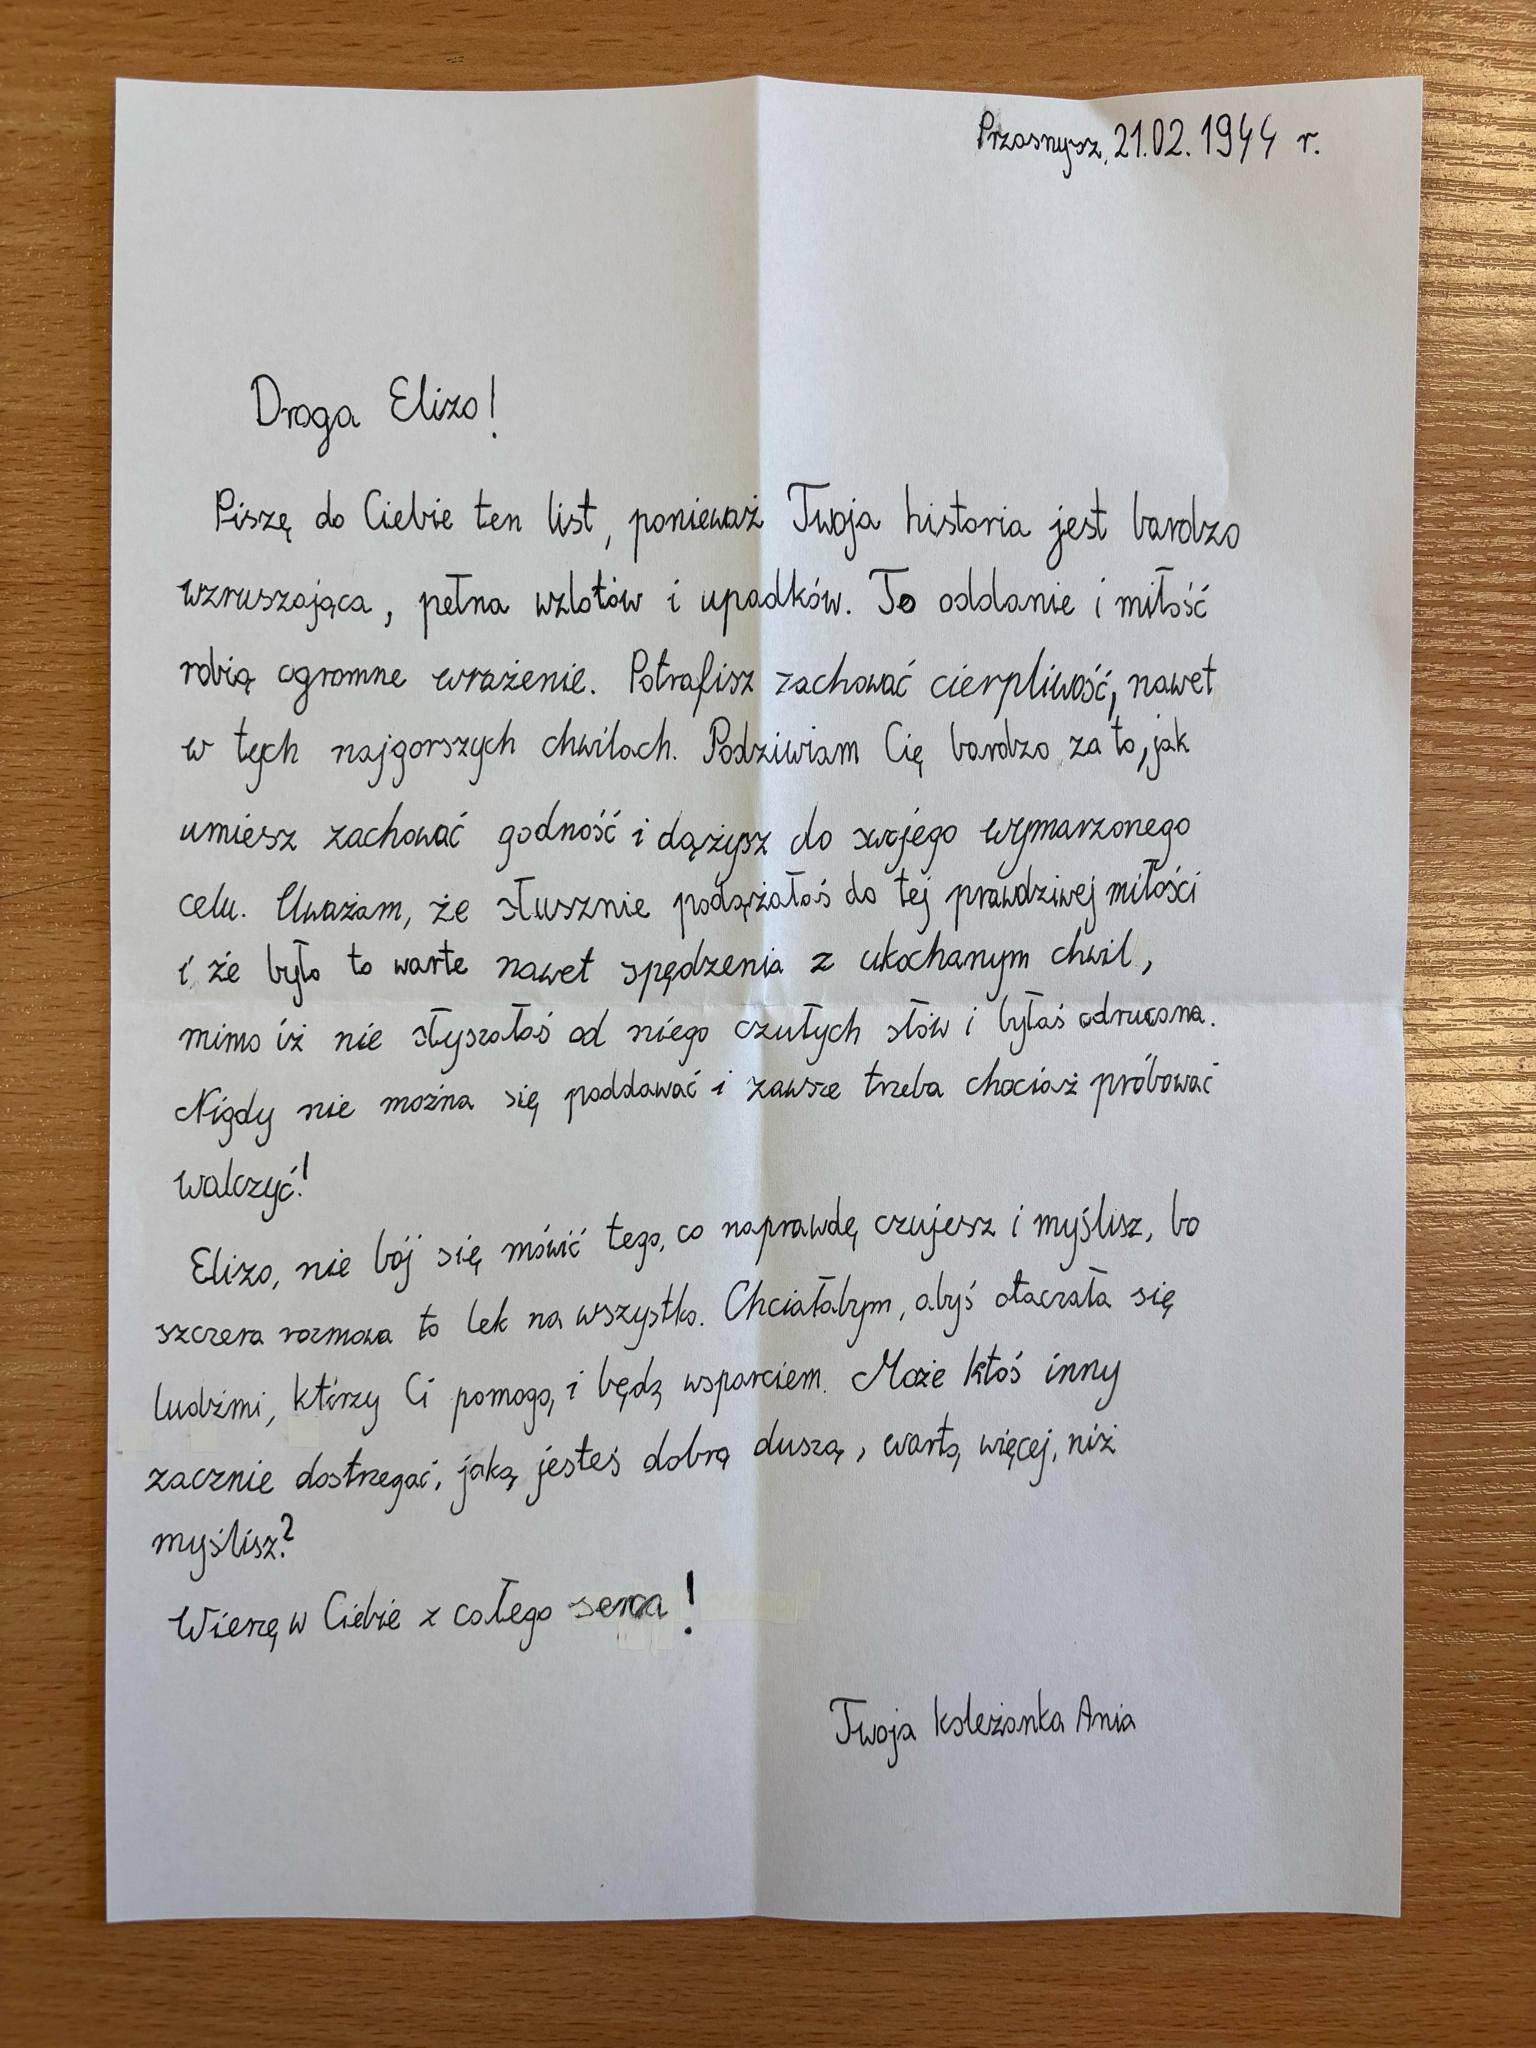 Przasnysz, 21.02.1944 r.
Droga Elizo!
Piszę do Ciebie ten list, ponieważ Twoja historia jest bardzo
wzruszająca, pełna wzlotów i upadków. To oddanie i miłość
robią ogromne wrażenie. Potrafisz zachować cierpliwość, nawet
w tych najgorszych chwilach. Podziwiam Cię bardzo za to, jak
umiesz zachować godność i dążysz do swojego wymarzonego
celu. Uważam, że słusznie podążałaś do tej prawdziwej miłości
i że było to warte nawet spędzenia z ukochanym chwil,
mimo iż nie słyszałaś od niego czułych słów i byłaś odrucona.
Nigdy nie można się poddawać i zawsze trzeba chociaż próbować
walczyć!
Elizo, nie bój się mówić tego, co naprawdę czujesz i myślisz, bo
szczera rozmowa to lek na wszystko. Chciałabym, abyś otaczała się
ludźmi, którzy Ci pomogą i będą wsparciem. Może ktoś inny
zacznie dostrzegać, jaką jesteś dobrą duszą, wartą więcej, niż
myślisz?
Wierzę w Ciebie z całego serca!
Twoja koleżanka Ania